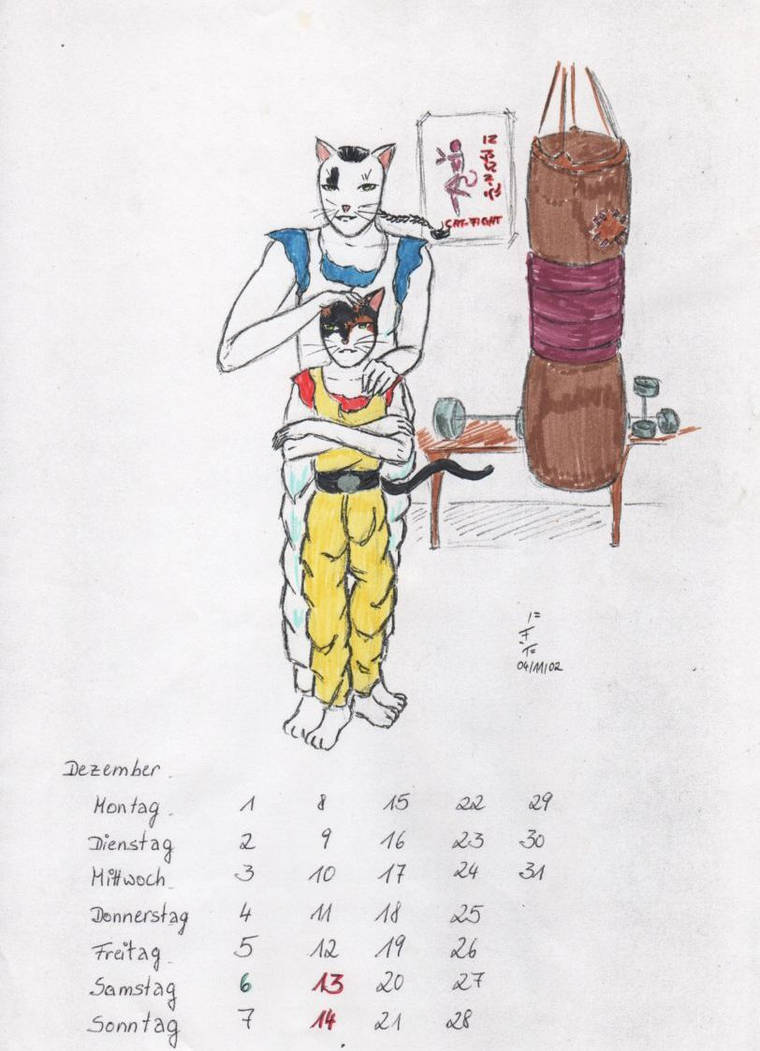 CAT-FIGHT
04/11/02
Dezember.
Montag. 1 8 15 22 29
Dienstag 2 9 16 23 30
Mittwoch 3 10 17 24 31
Donnerstag 4 11 18 25
Freitag. 5 12 19 26
Samstag 6 13 20 27
Sonntag 7 14 21 28